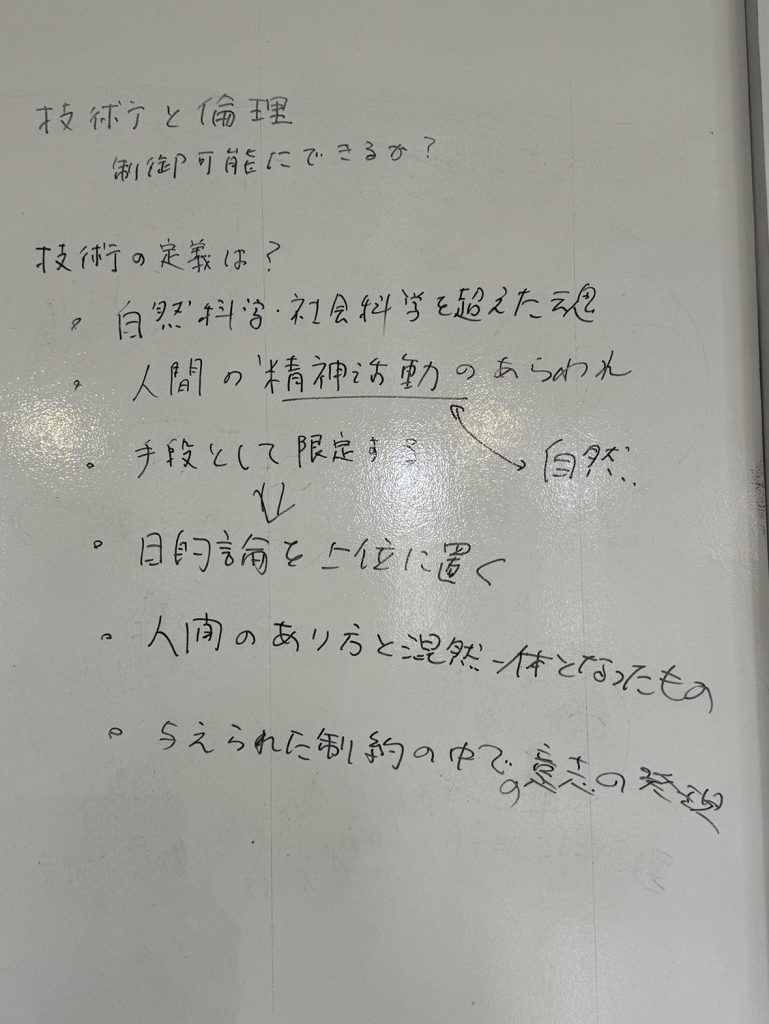 技術と倫理
制御可能にできるか?
技術の定義は?
・自然科学・社会科学を超えた魂
・人間の精神活動のあらわれ
・手段として限定する
自然
・目的論を上位に置く
・人間のあり方と混然一体となったもの
・与えられた制約の中での意志の発現